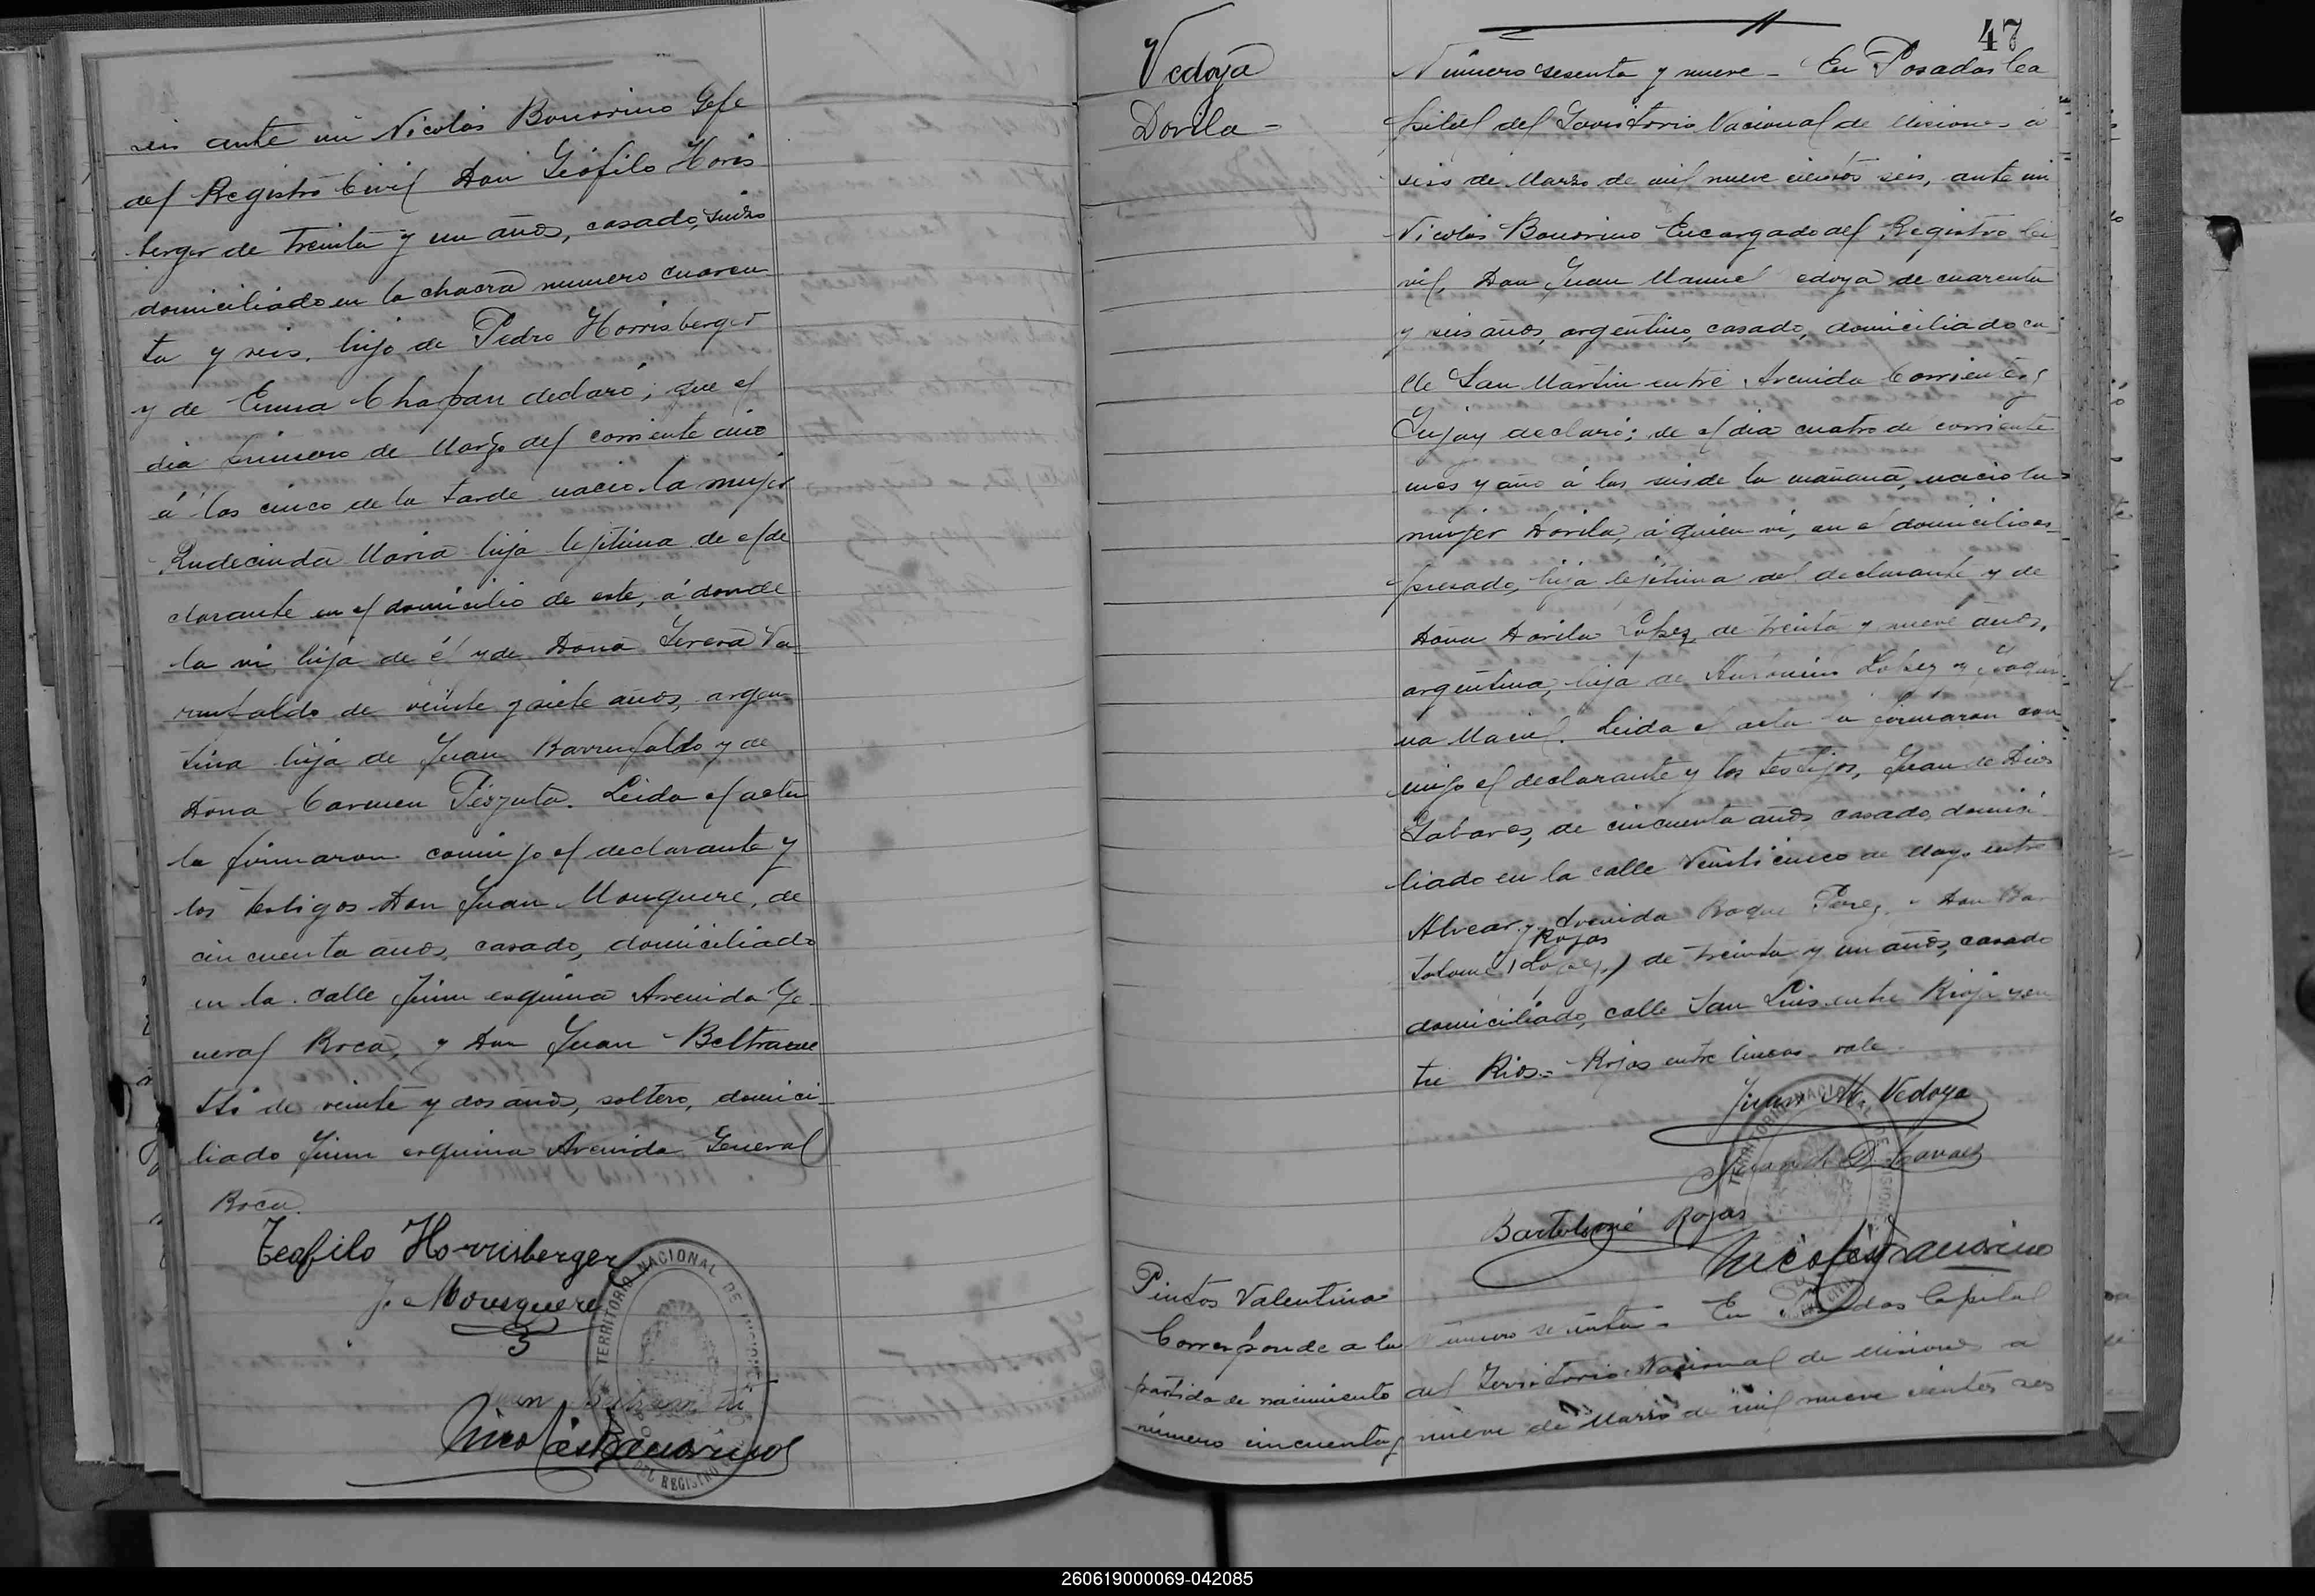 seis ante mi Nicolás Bonorino Gefe
del Registro Civil Don Teófilo Horis
berger de treinta y un años, casado, suizo
domiciliado en la chacra numero cuaren
ta y seis, hijo de Pedro Horrisberger
y de Emma Chapan declaró; que el
dia primero de Marzo del corriente año
á las cinco de la tarde nació la mujer
Rudecinda Maria hija lejitima de el de
clarante en el domicilio de este, á donde
la vi hija de él y de Dona
de veinte y siete años, argen
tina hija de Juan y de
Dona Carmen Leida el acta
la firmaron conmijo el declarante y
los testigos Don Juan Mousquere, de
cincuenta años, casado, domiciliado
en la calle Junin esquina Avenida Ge
neral Roca, y Don Juan Beltrame
tti de veinte y dos años, soltero, domici
liado Junin esquina Avenida General
Roca.
Teofilo Horrisberger
J. Mousquere
Nicolás Bonorino
TERRITORIO NACIONAL DE MISIONES
DEL REGISTRO
47
Vedoya
Dorila
Número sesenta y nueve - En Posadas Ca
pital del Territorio Nacional de Misiones á
seis de Marzo de mil nueve cientos seis, ante mi
Nicolás Bonorino Encargado del Registro Ci
vil, Don Juan Manuel edoya de cuarenta
y seis años, argentino, casado, domiciliado ca
lle San Martin entre Avenida Corrientes y
Jujuy declaró; de el dia cuatro de corriente
mes y año á las seis de la mañana, nacio la
mujer Dorila, á quien vi, en el domicilio es
presado, hija lejitima del declarante y de
Dona Dorila Lopez, de treinta y nueve años,
argentina, hija de Antonino Lopez y Joaqui
na Maciel. Leida el acta la firmaron con
mijo el declarante y los testijos, Juan de Dios
de cincuenta años casado, domici
liado en la calle Veinticinco de Mayo entre
Alvear y Avenida Roque Perez y Don Bar
Rojas
tolomé (Lopez) de treinta y un años, casado
domiciliado, calle San Luis entre Rioja y en
tre Rios = Rojas entre lineas - vale
Juan M. Vedoya
Bartolomé Rojas
Nicolás Bonorino
TERRITORIO NACIONAL DE MISIONES
Pintos Valentina
Corresponde a la
partida de nacimiento
número cincuenta y
Número setenta = En Posadas Capital
del Territorio Nacional de Misiones a
nueve de Marzo de mil nueve cientos seis
260619000069-042085